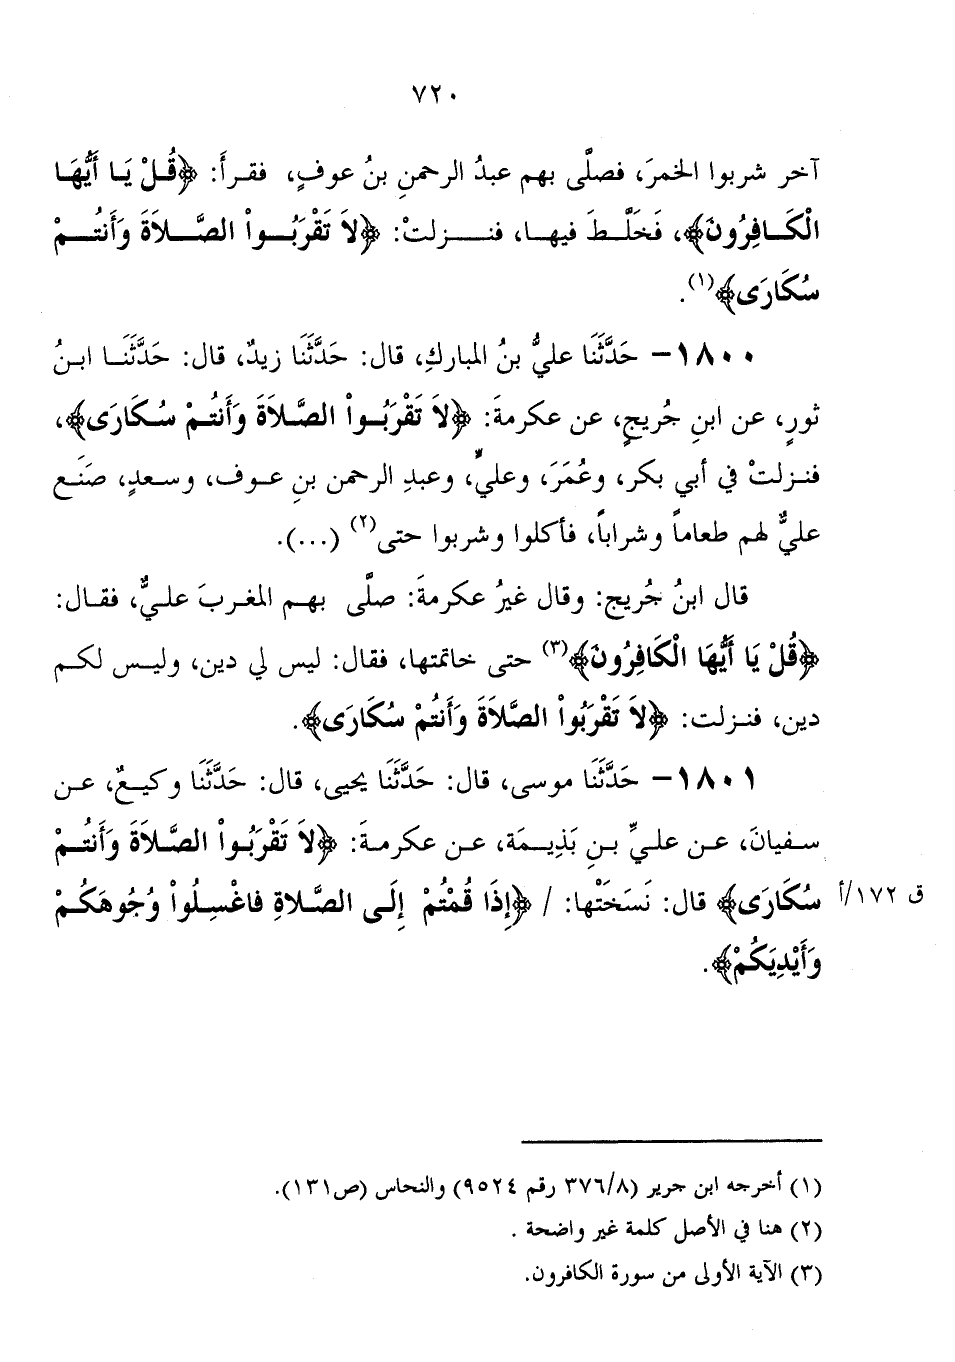 ٧٢٠
آخر شربوا الخمرَ، فصلَّى بهم عبدُ الرحمنِ بنُ عوفٍ، فقرأَ: ﴿قُلْ يَا أَيُّهَا
الْكَافِرُونَ﴾، فَخَلَّطَ فيها، فنزلتْ: ﴿لاَ تَقْرَبُواْ الصَّلاَةَ وَأَنتُمْ
سُكَارَى﴾(١).
١٨٠٠- حَدَّثَنَا عليُّ بنُ المباركِ، قال: حَدَّثَنَا زيدٌ، قال: حَدَّثَنَا ابنُ
ثورٍ، عن ابنِ جُريجٍ، عن عكرمةَ: ﴿لاَ تَقْرَبُواْ الصَّلاَةَ وَأَنتُمْ سُكَارَى﴾،
فنزلتْ في أبي بكر، وعُمَرَ، وعليٍّ، وعبدِ الرحمن بنِ عوف، وسعدٍ، صَنَع
عليٌّ لهم طعاماً وشراباً، فأكلوا وشربوا حتى(٢) (...).
قال ابنُ جُريج: وقال غيرُ عكرمةَ: صلَّى بهم المغربَ عليٌّ، فقال:
﴿قُلْ يَا أَيُّهَا الْكَافِرُونَ﴾(٣) حتى خاتمتها، فقال: ليس لي دين، وليس لكم
دين، فنزلت: ﴿لاَ تَقْرَبُواْ الصَّلاَةَ وَأَنتُمْ سُكَارَى﴾.
١٨٠١- حَدَّثَنَا موسى، قال: حَدَّثَنَا يحيى، قال: حَدَّثَنَا وكيعٌ، عن
سفيانَ، عن عليِّ بنِ بَذِيمَة، عن عكرمةَ: ﴿لاَ تَقْرَبُواْ الصَّلاَةَ وَأَنتُمْ
سُكَارَى﴾ قال: نَسَخَتْها: / ﴿إِذَا قُمْتُمْ إِلَى الصَّلاةِ فاغْسِلُواْ وُجُوهَكُمْ
ق ١٧٢/أ
وَأَيْدِيَكُمْ﴾.
(١) أخرجه ابن جرير (٣٧٦/٨ رقم ٩٥٢٤) والنحاس (ص١٣١).
(٢) هنا في الأصل كلمة غير واضحة .
(٣) الآية الأولى من سورة الكافرون.